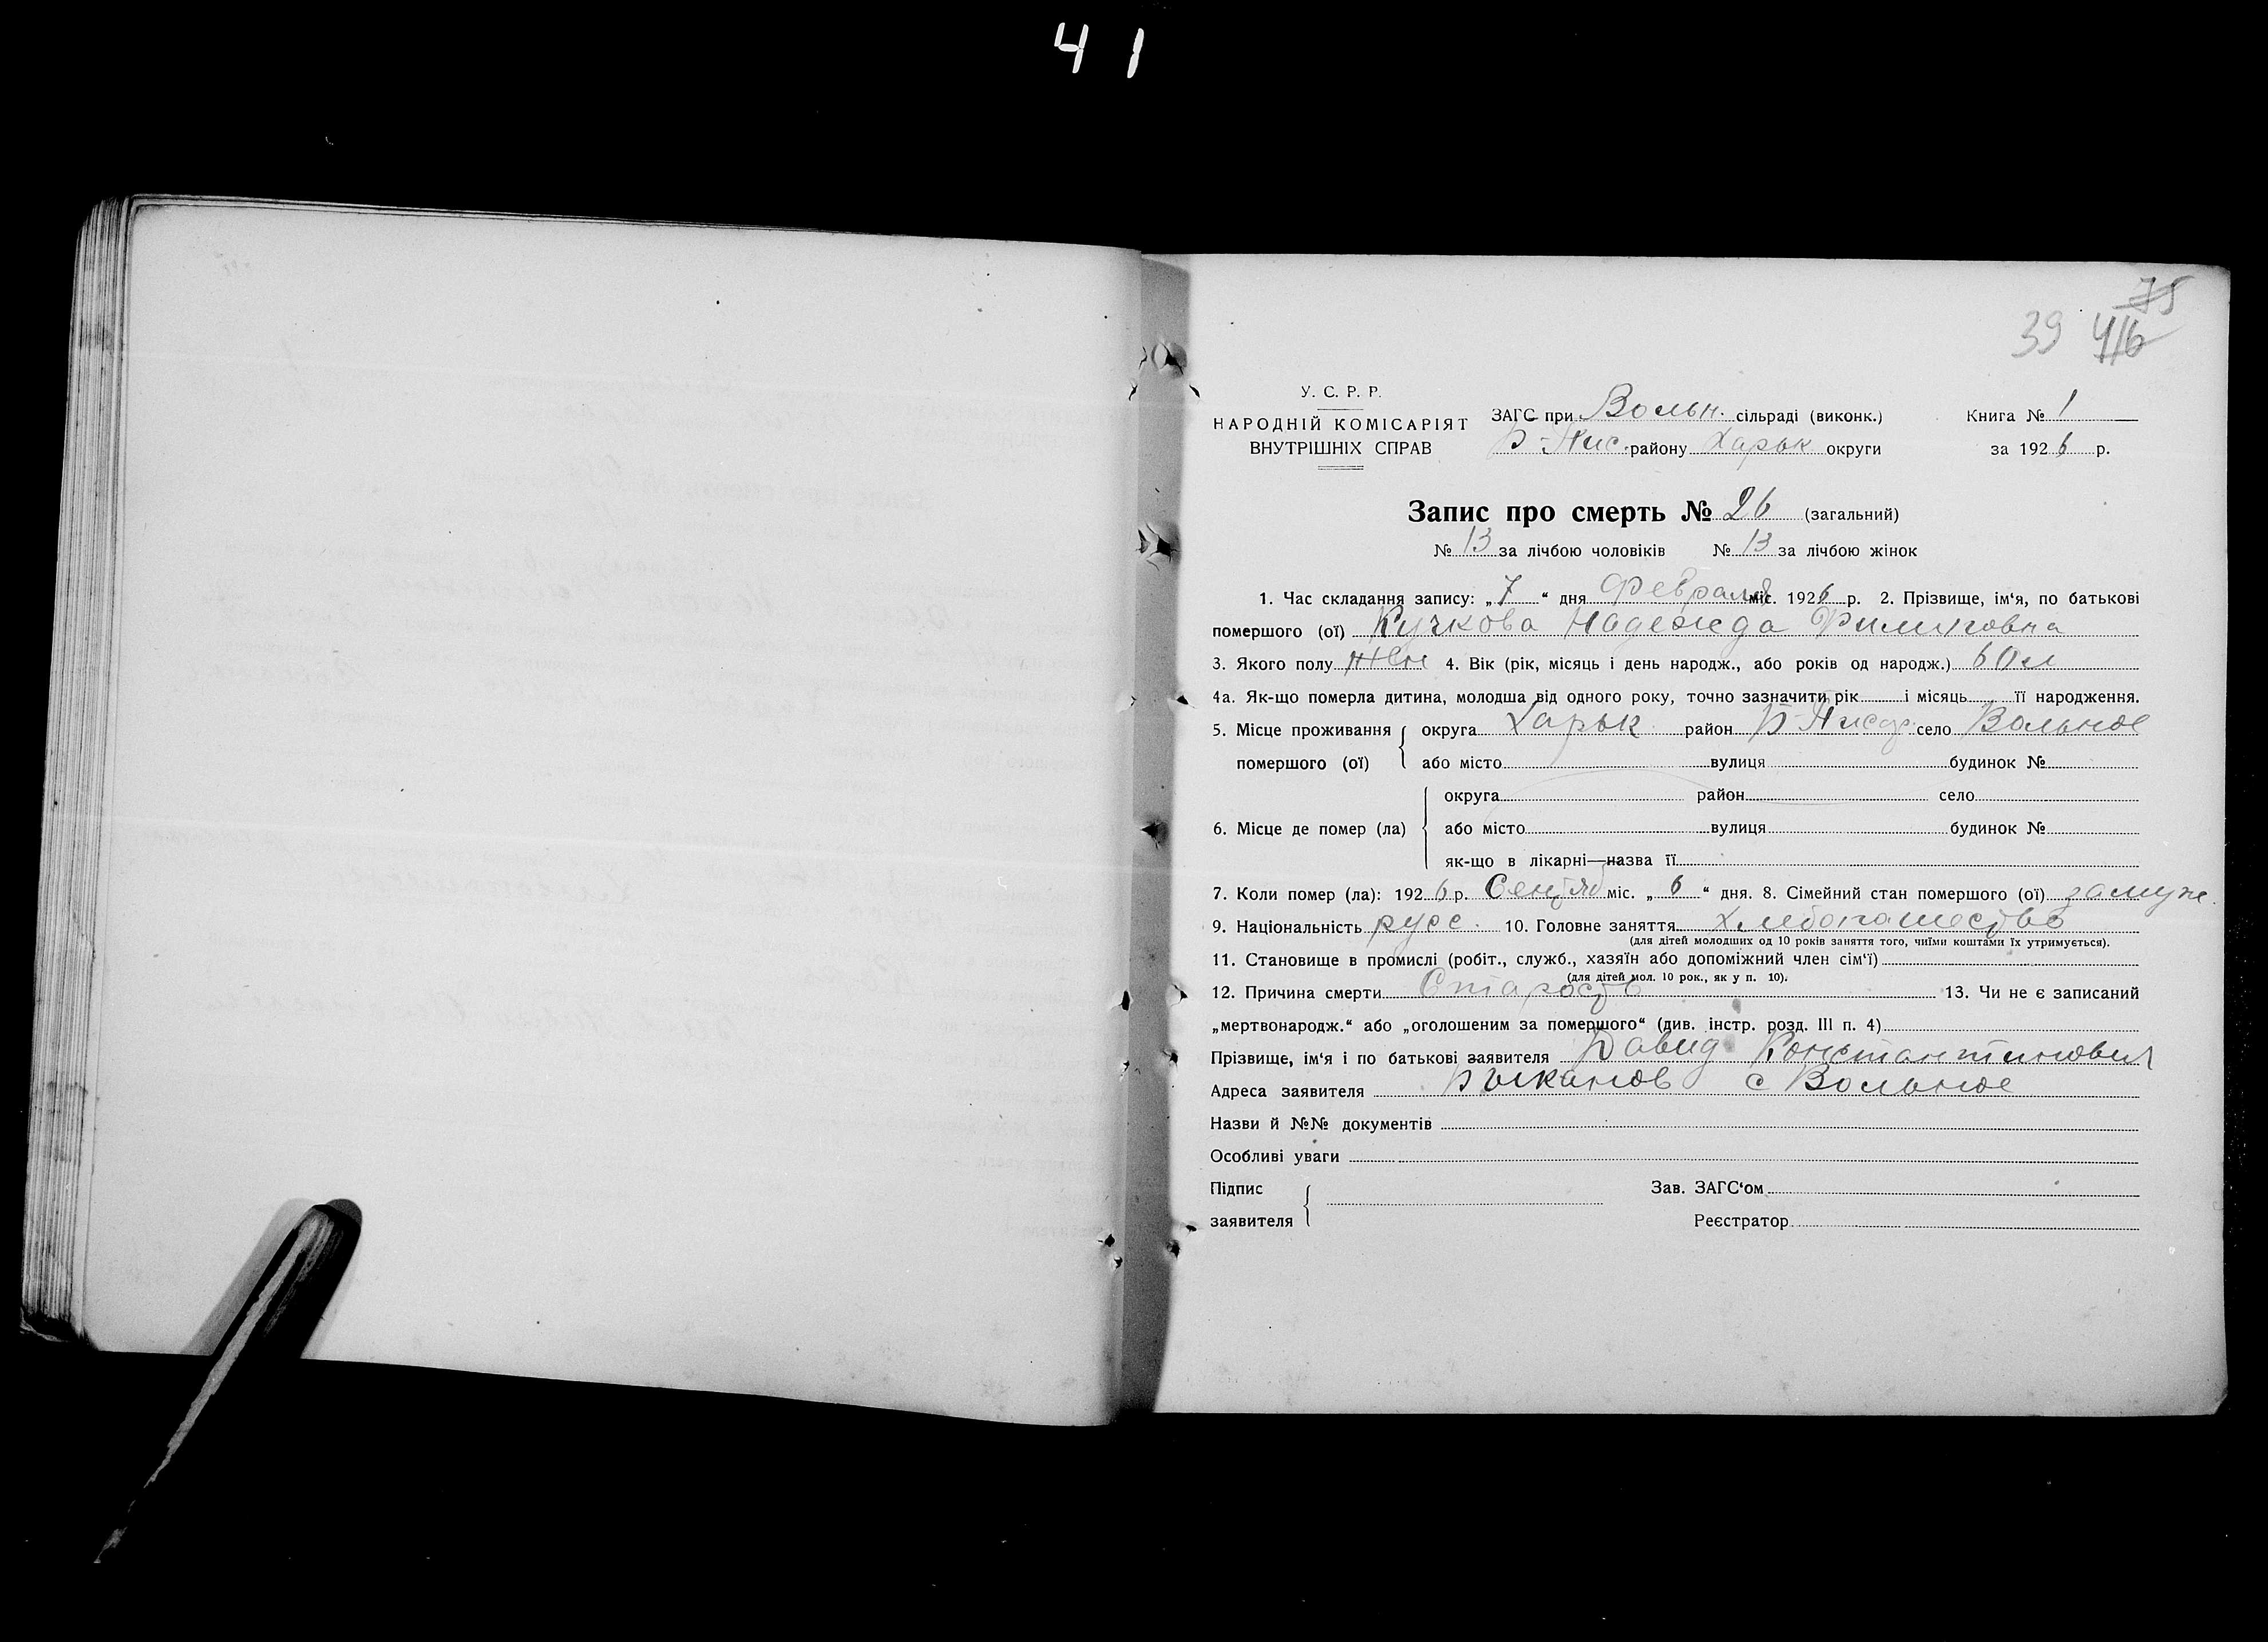 41
75
39 416
У. С. Р. Р.
НАРОДНІЙ КОМІСАРІЯТ
ВНУТРІШНІХ СПРАВ
ЗАГС при Вольн. сільраді (виконк.)
Б-Пис. району Харьк округи
Книга № 1
за 1926 р.
Запис про смерть № 26 (загальний)
№ 13 за лічбою чоловіків № 13 за лічбою жінок
1. Час складання запису: „7“ дня Февраля міс. 1926 р. 2. Прізвище, ім‘я, по батькові
помершого (ої) Кучкова Надежда
3. Якого полу жен 4. Вік (рік, місяць і день народж., або років од народж.) 60 л
4а. Як-що померла дитина, молодша від одного року, точно зазначити рік і місяць її народження.
5. Місце проживання помершого (ої) { округа Харьк район Б-Писар село Вольное
або місто вулиця будинок №
6. Місце де помер (ла) { округа район село
або місто вулиця будинок №
як-що в лікарні—назва її
7. Коли помер (ла): 1926 р. міс. „6“ дня. 8. Сімейний стан помершого (ої) замуж.
9. Національність русс. 10. Головне заняття Хлебопашество
(для дітей молодших од 10 років заняття того, чиїми коштами їх утримується).
11. Становище в промислі (робіт., служб., хазяїн або допоміжний член сім‘ї)
(для дітей мол. 10 рок., як у п. 10).
12. Причина смерти Старость 13. Чи не є записаний
„мертвонародж.“ або „оголошеним за помершого“ (див. інстр. розд. III п. 4)
Прізвище, ім‘я і по батькові заявителя Давид Константинович
Адреса заявителя с Вольное
Назви й №№ документів
Особливі уваги
Підпис заявителя {
Зав. ЗАГС‘ом
Реєстратор